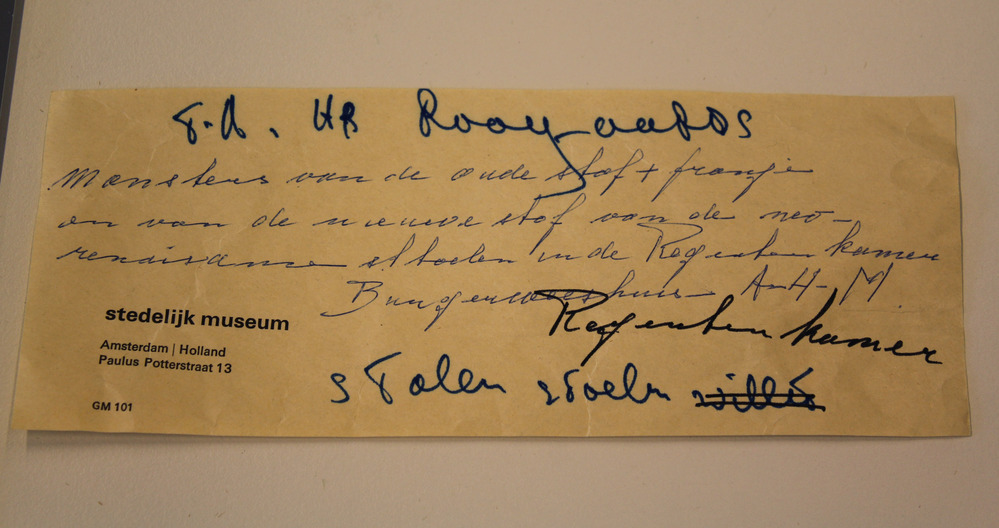 T.A. HR Rooyaards
Monsters van de oude stof + franje
en van de nieuwe stof van de neo-
renaissance stoelen in de Regentenkamer
Burgerweeshuis A.H.M
Regentenkamer
stedelijk museum
Amsterdam | Holland
Paulus Potterstraat 13
stalen stoeln
GM 101